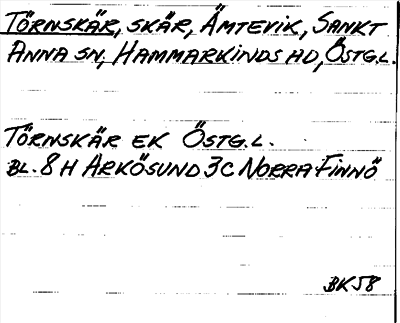 TÖRNSKÄR, SKÄR, ÄMTEVIK, SANKT
ANNA SN, HAMMARKINDS HD, ÖSTG.L.
TÖRNSKÄR EK ÖSTG.L.
BL. 8 H ARKÖSUND 3 C NORRA FINNÖ
BK58